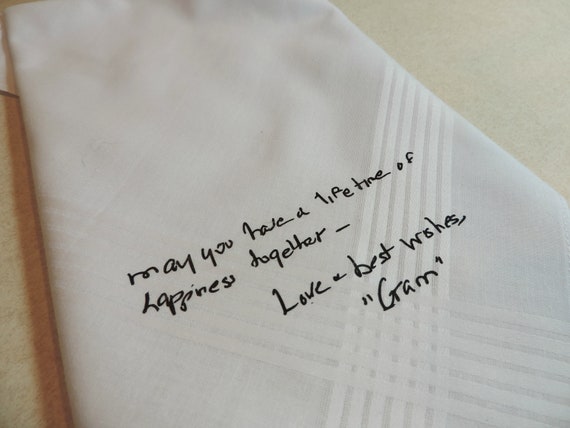 may you have a lifetime of
happiness together –
Love & best wishes,
"Gram"